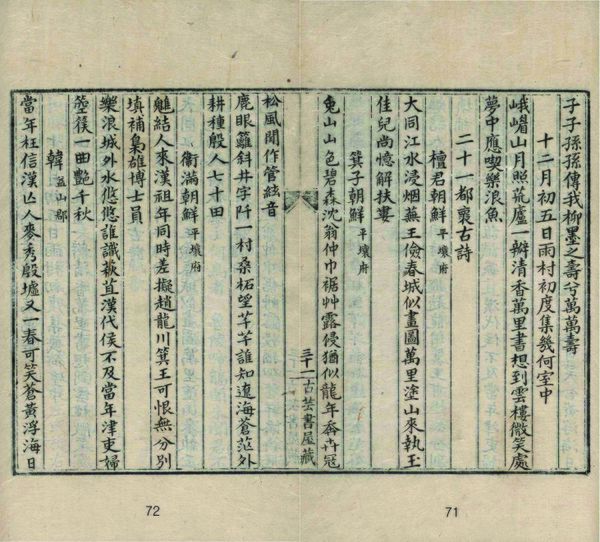 子子孫孫傳我柳墨之壽兮萬萬壽
十二月初五日雨村初度集幾何室中
峨嵋山月照荒廬一瓣清香萬里書想到雲樓微笑處
夢中應喫樂浪魚
二十一都褱古詩
檀君朝鮮 平壤府
大同江水浸烟蕪王儉春城似畫圖萬里塗山來執玉
佳兒尚憶解扶婁
箕子朝鮮 平壤府
兔山山色碧森沈翁仲巾裾艸露侵猶似龍年奔卉冦
三十二 古芸書屋藏
松風閒作管絃音
鹿眼籬斜井字阡一村桑柘望芊芊誰知遼海蒼茫外
耕種殷人七十田
衛滿朝鮮 平壤府
魋結人來漢祖年同時差擬趙龍川箕王可恨無分別
塡補梟雄博士員
樂浪城外水悠悠誰識萩苴漢代侯不及當年津吏婦
箜篌一曲艷千秋
韓 益山郡
當年枉信漢亡人麥秀殷墟又一春可笑蒼黃浮海日
71
72